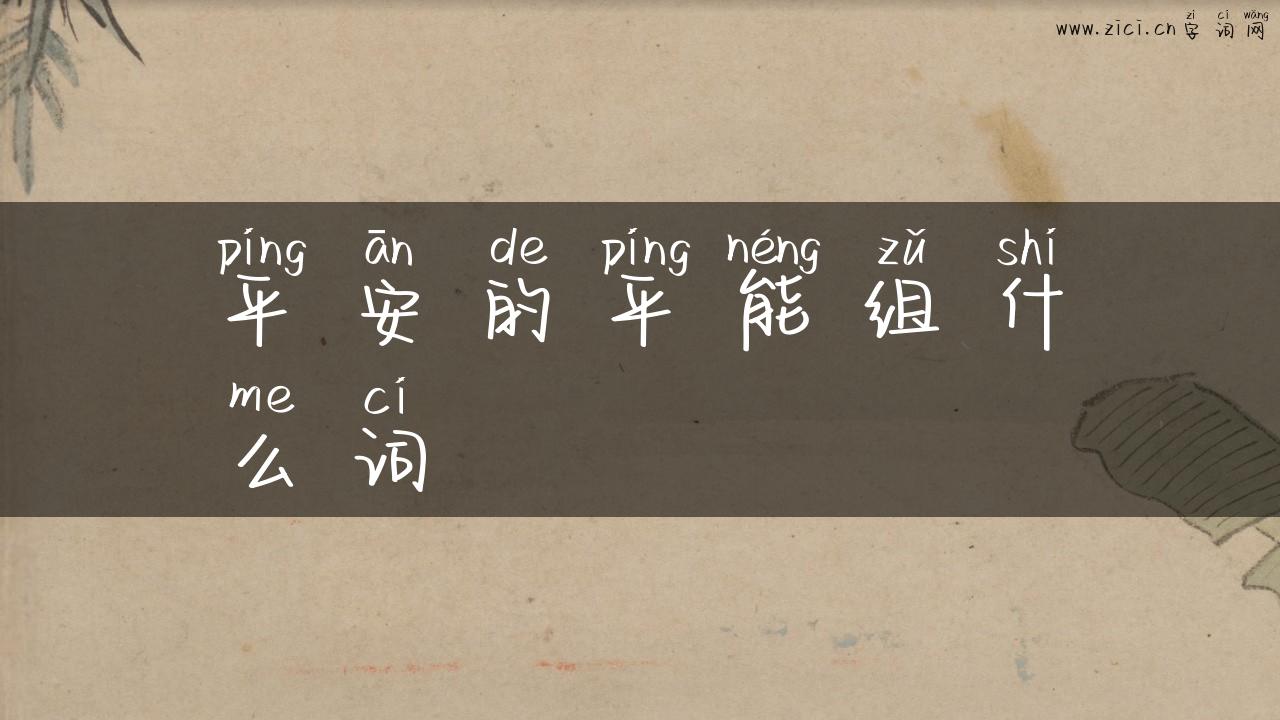 zì cí wǎng
www.zici.cn 字词网
píng ān de píng néng zǔ shí
平安的平能组什
me cí
么词